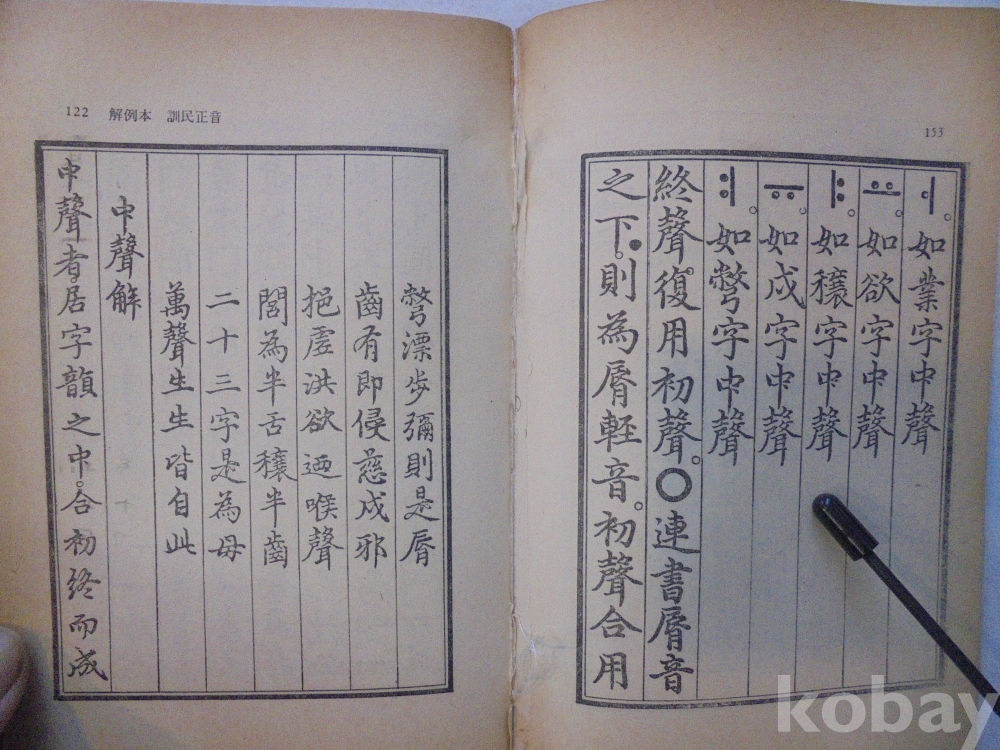 153
ㅓ。如業字中聲
ㅛ。如欲字中聲
ㅑ。如穰字中聲
ㅠ。如戌字中聲
ㅕ。如彆字中聲
終聲復用初聲。○連書脣音
之下。則為脣輕音。初聲合用
122 解例本 訓民正音
彆漂步彌則是脣
齒有即侵慈戌邪
挹虛洪欲迺喉聲
閭為半舌穰半齒
二十三字是為母
萬聲生生皆自此
中聲解
中聲者。居字韻之中。合初終而成
kobay